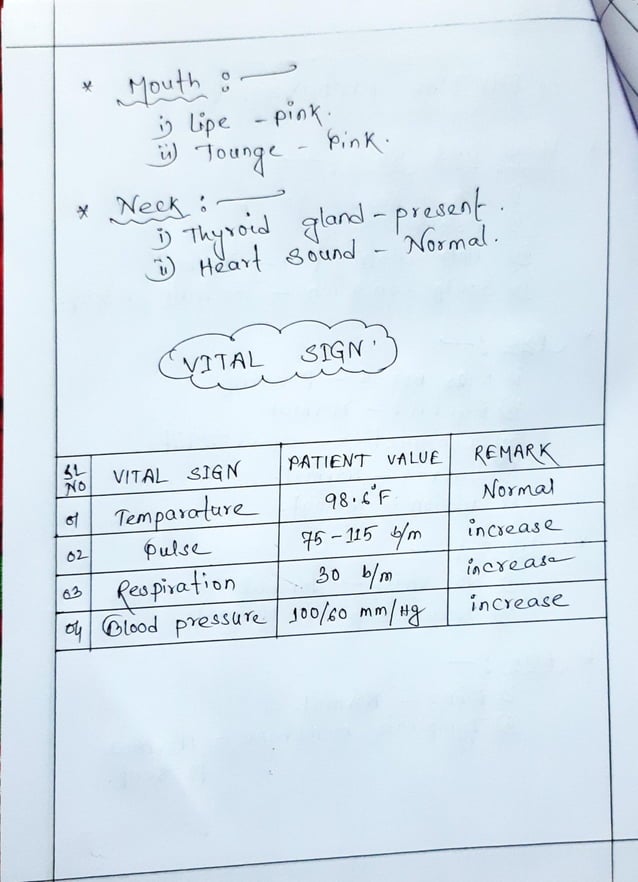 * Mouth :
i) Lipe - pink.
ii) Tounge - pink.
* Neck :
i) Thyroid gland - present.
ii) Heart sound - Normal.
VITAL SIGN
SL NO VITAL SIGN PATIENT VALUE REMARK
01 Temparature 98.6°F Normal
02 Pulse 75-115 b/m increase
03 Respiration 30 b/m increase
04 Blood pressure 100/60 mm/Hg increase